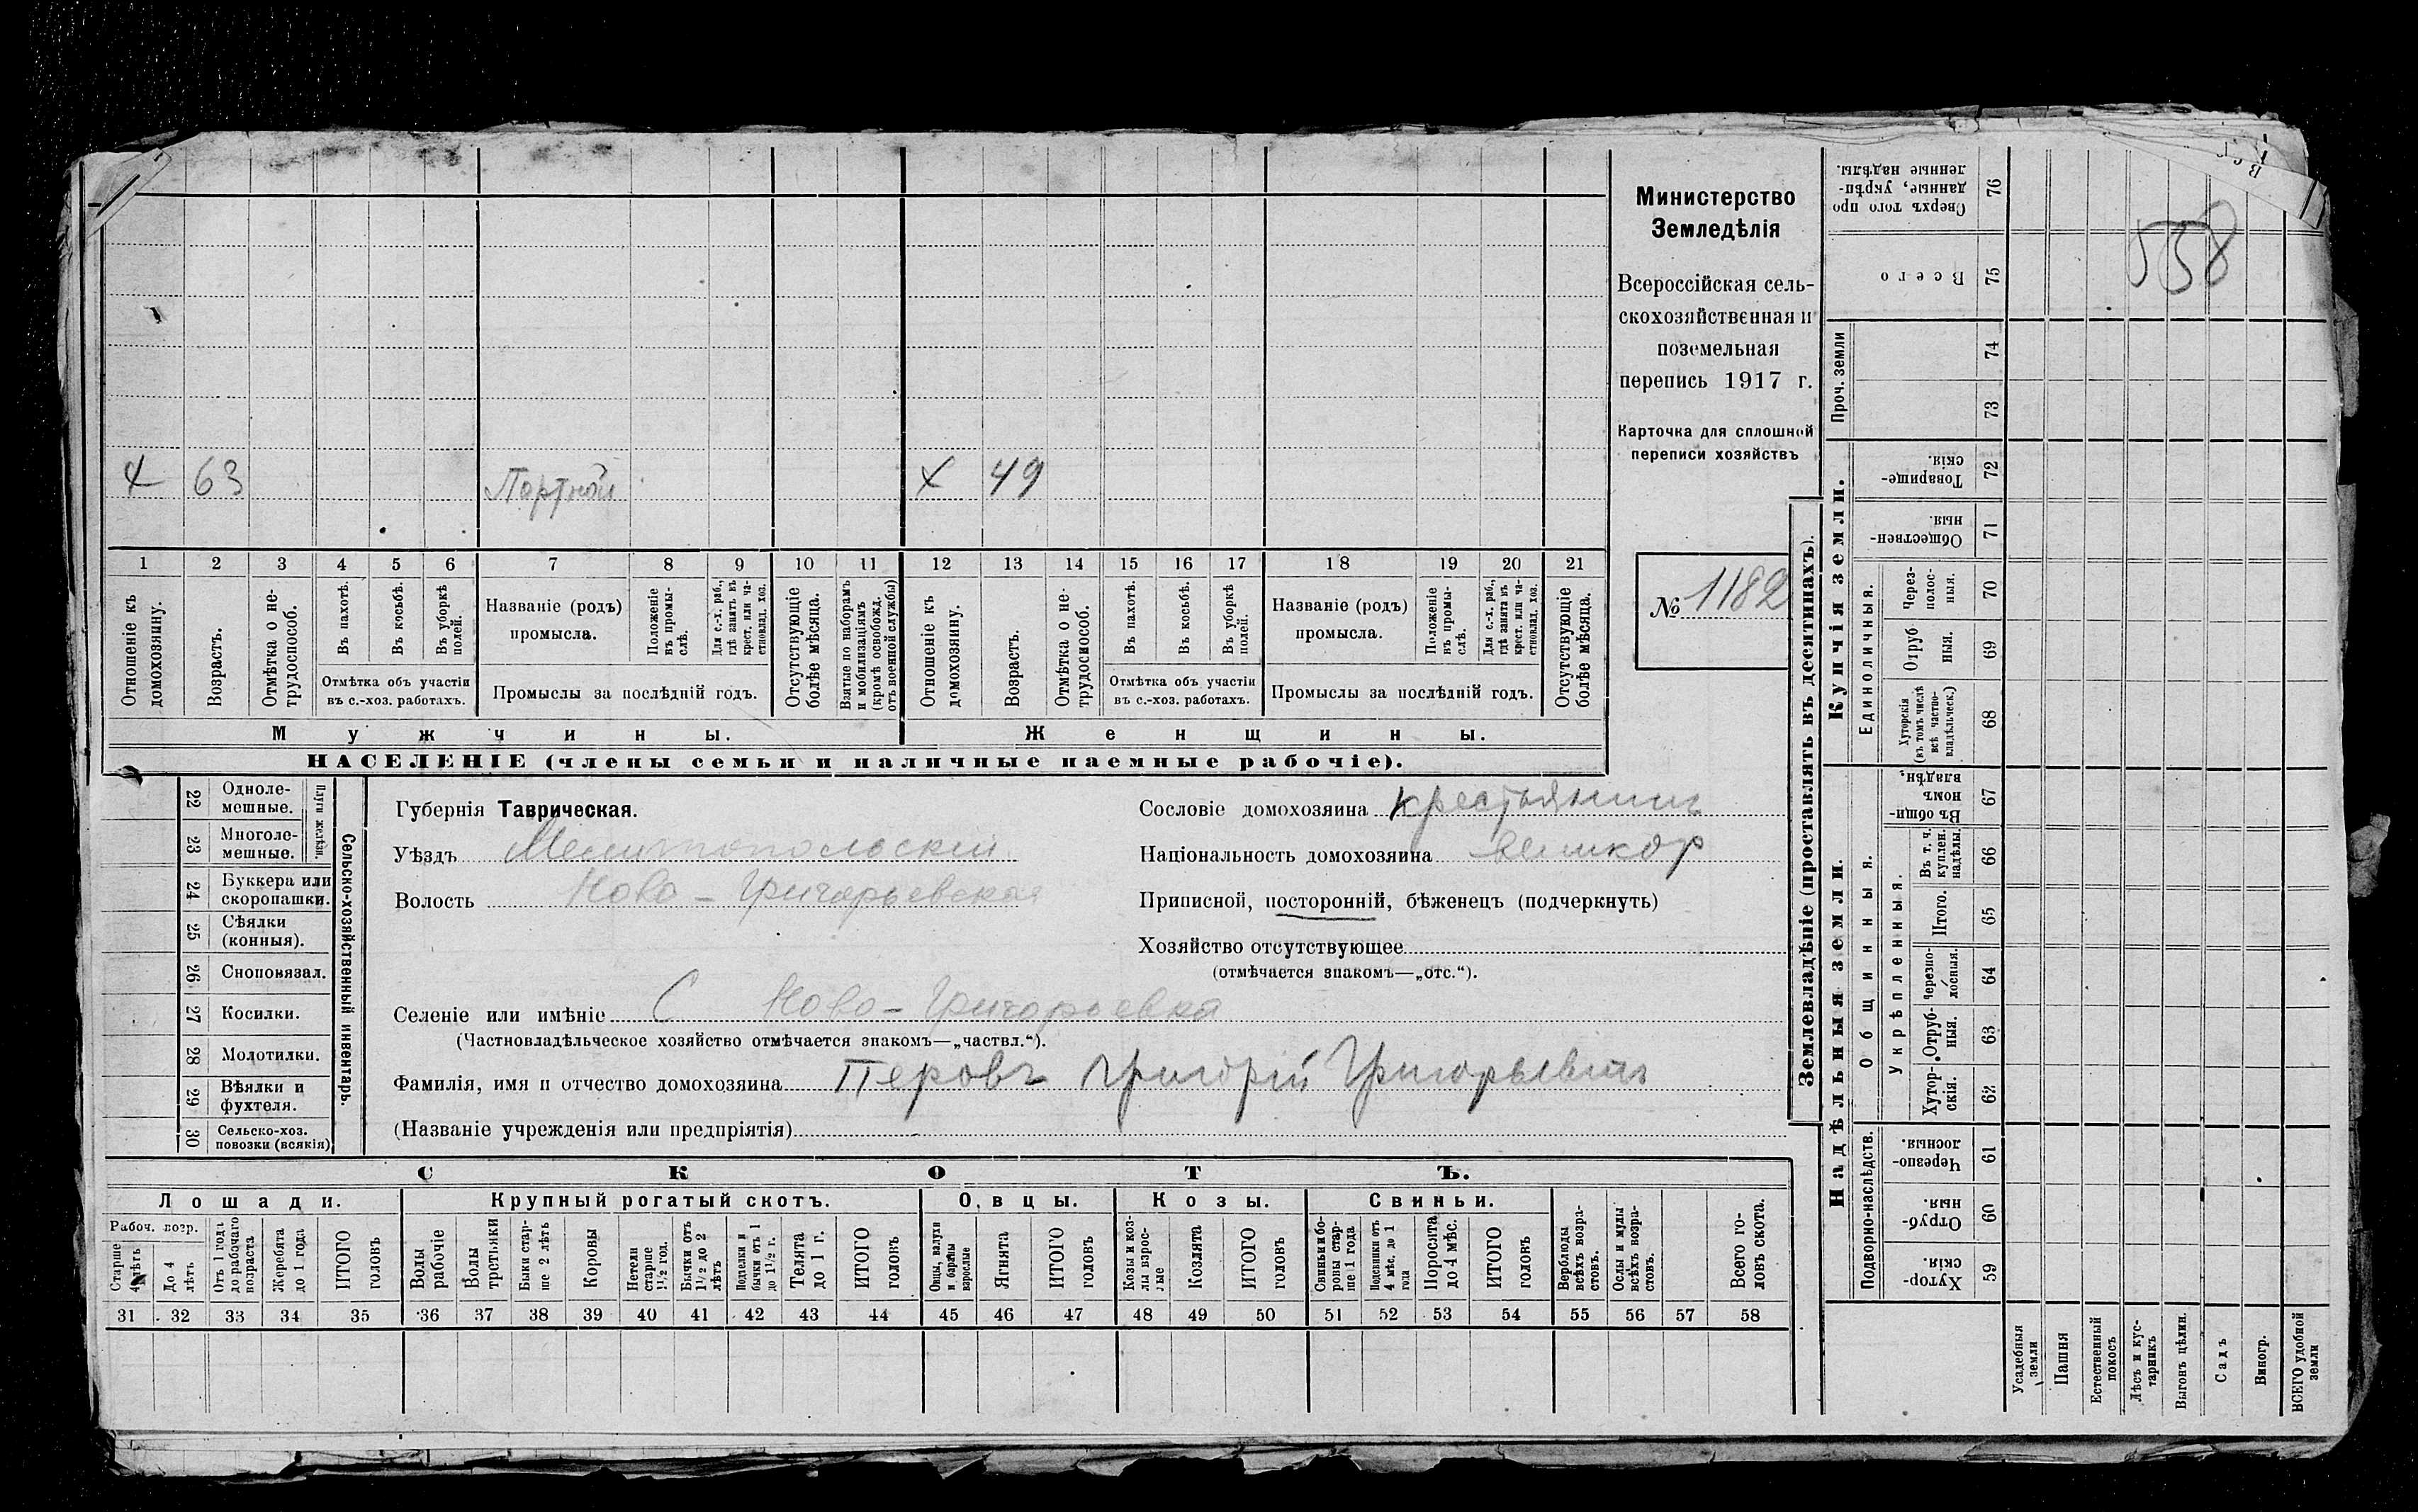 Министерство
Земледѣлія
Всероссійская сель-
скохозяйственная и
поземельная
перепись 1917 г.
Карточка для сплошной
переписи хозяйствъ
№ 1182
558
х 63 Портной х 49
1 2 3 4 5 6 7 8 9 10 11 12 13 14 15 16 17 18 19 20 21
Отношеніе къ домохозяину.
Возрастъ.
Отмѣтка о не-трудоспособ.
Въ пахотѣ.
Въ косьбѣ.
Въ уборкѣ полей.
Отмѣтка объ участіи
въ с.-хоз. работахъ.
Названіе (родъ)
промысла.
Положеніе въ промы-слѣ.
Для с.-х. раб., гдѣ занятъ въ крест. или ча-стновлад. хоз.
Промыслы за послѣдній годъ.
Отсутствующіе болѣе мѣсяца.
Взятые по наборамъ и мобилизаціямъ (кромѣ освобожд. отъ военной службы)
Отношеніе къ домохозяину.
Возрастъ.
Отмѣтка о не-трудоспособ.
Въ пахотѣ.
Въ косьбѣ.
Въ уборкѣ полей.
Отмѣтка объ участіи
въ с.-хоз. работахъ.
Названіе (родъ)
промысла.
Положеніе въ промы-слѣ.
Для с.-х. раб., гдѣ занята въ крест. или ча-стновлад. хоз.
Промыслы за послѣдній годъ.
Отсутствующіе болѣе мѣсяца.
Мужчины. Женщины.
НАСЕЛЕНІЕ (члены семьи и наличные наемные рабочіе).
22 Одноле-мешные.
23 Многоле-мешные.
Плуги желѣзн.
24 Буккера или скоропашки.
25 Сѣялки (конныя).
26 Сноповязал.
27 Косилки.
28 Молотилки.
29 Вѣялки и фухтеля.
30 Сельско-хоз. повозки (всякія)
Сельско-хозяйственный инвентарь.
Губернія Таврическая.
Уѣздъ Мелитопольскій
Волость Ново-Григорьевская
Сословіе домохозяина крестьянинъ
Національность домохозяина великор
Приписной, посторонній, бѣженецъ (подчеркнуть)
Хозяйство отсутствующее
(отмѣчается знакомъ—„отс.“).
Селеніе или имѣніе С Ново-Григорьевка
(Частновладѣльческое хозяйство отмѣчается знакомъ—„частвл.“).
Фамилія, имя и отчество домохозяина Перовъ Григорій Григорьевич
(Названіе учрежденія или предпріятія)
СКОТЪ.
Лошади. Крупный рогатый скотъ. Овцы. Козы. Свиньи.
Рабоч. возр.
Старше 4 лѣтъ
До 4 лѣтъ
Отъ 1 года до рабочаго возраста
Жеребята до 1 года
ИТОГО головъ
Волы рабочіе
Волы третьяки
Быки стар-ше 2 лѣтъ
Коровы
Нетели старше 1½ год.
Бычки отъ 1½ до 2 лѣтъ
Подтелки и бычки отъ 1 до 1½ г.
Телята до 1 г.
ИТОГО головъ
Овцы, валухи и бараны взрослые
Ягнята
ИТОГО головъ
Козы и коз-лы взрос-лые
Козлята
ИТОГО головъ
Свиньи и бо-ровы стар-ше 1 года
Подсвинки отъ 4 мѣс. до 1 года
Поросята до 4 мѣс.
ИТОГО головъ
Верблюды всѣхъ возра-стовъ.
Ослы и мулы всѣхъ возра-стовъ.
Всего го-ловъ скота.
31 32 33 34 35 36 37 38 39 40 41 42 43 44 45 46 47 48 49 50 51 52 53 54 55 56 57 58
Землевладѣніе (проставлять въ десятинахъ).
Надѣльныя земли. Купчія земли. Проч. земли
Подворно-наслѣдств.
Общинныя.
Укрѣпленныя.
Единоличныя.
59 Хутор-скія.
60 Отруб-ныя.
61 Черезпо-лосныя.
62 Хутор-скія.
63 Отруб-ныя.
64 Черезпо-лосныя.
65 Итого.
66 Въ т. ч. куплен. надѣлы.
67 Въ общи-номъ владѣн.
68 Хуторскія (въ томъ числѣ всѣ частно-владѣльческ.)
69 Отруб ныя.
70 Через-полос-ныя.
71 Обществен-ныя.
72 Товарище-скія.
73
74
75 Всего
76 Сверхъ того про данные, укрѣп-ленные надѣлы.
Усадебныя земли
Пашня
Естественный покосъ
Лѣсъ и кус-тарникъ
Выгонъ цѣлин.
Садъ
Виногр.
ВСЕГО удобной земли